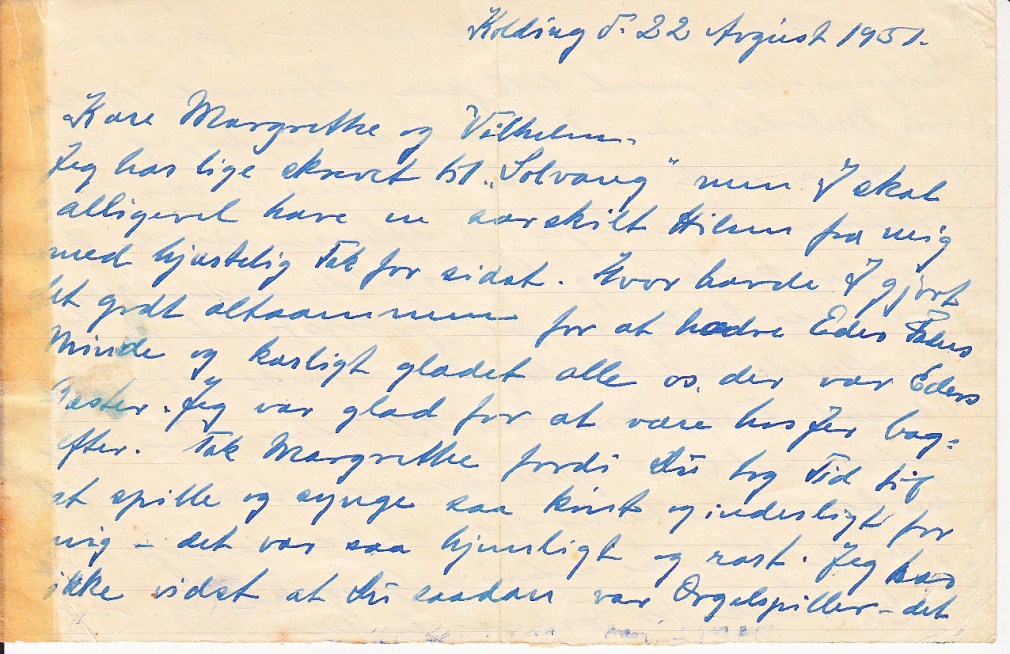 Kolding d. 22 August 1951.
Kære Margrethe og Vilhelm.
Jeg har lige skrevet til „Solvang" men I skal
alligevel have en særskilt Hilsen fra mig
med hjærtelig Tak for sidst. Hvor havde I gjort
det godt altsammen for at hædre Eders Faders
Minde og kærligt glædet alle os, der var Eders
Gæster. Jeg var glad for at være hos Jer bag=
efter. Tak Margrethe fordi Du tog Tid til
at spille og synge saa kønt og inderligt for
mig – det var saa hjemligt og rart. Jeg har
ikke vidst at Du saadan var Orgelspiller – det